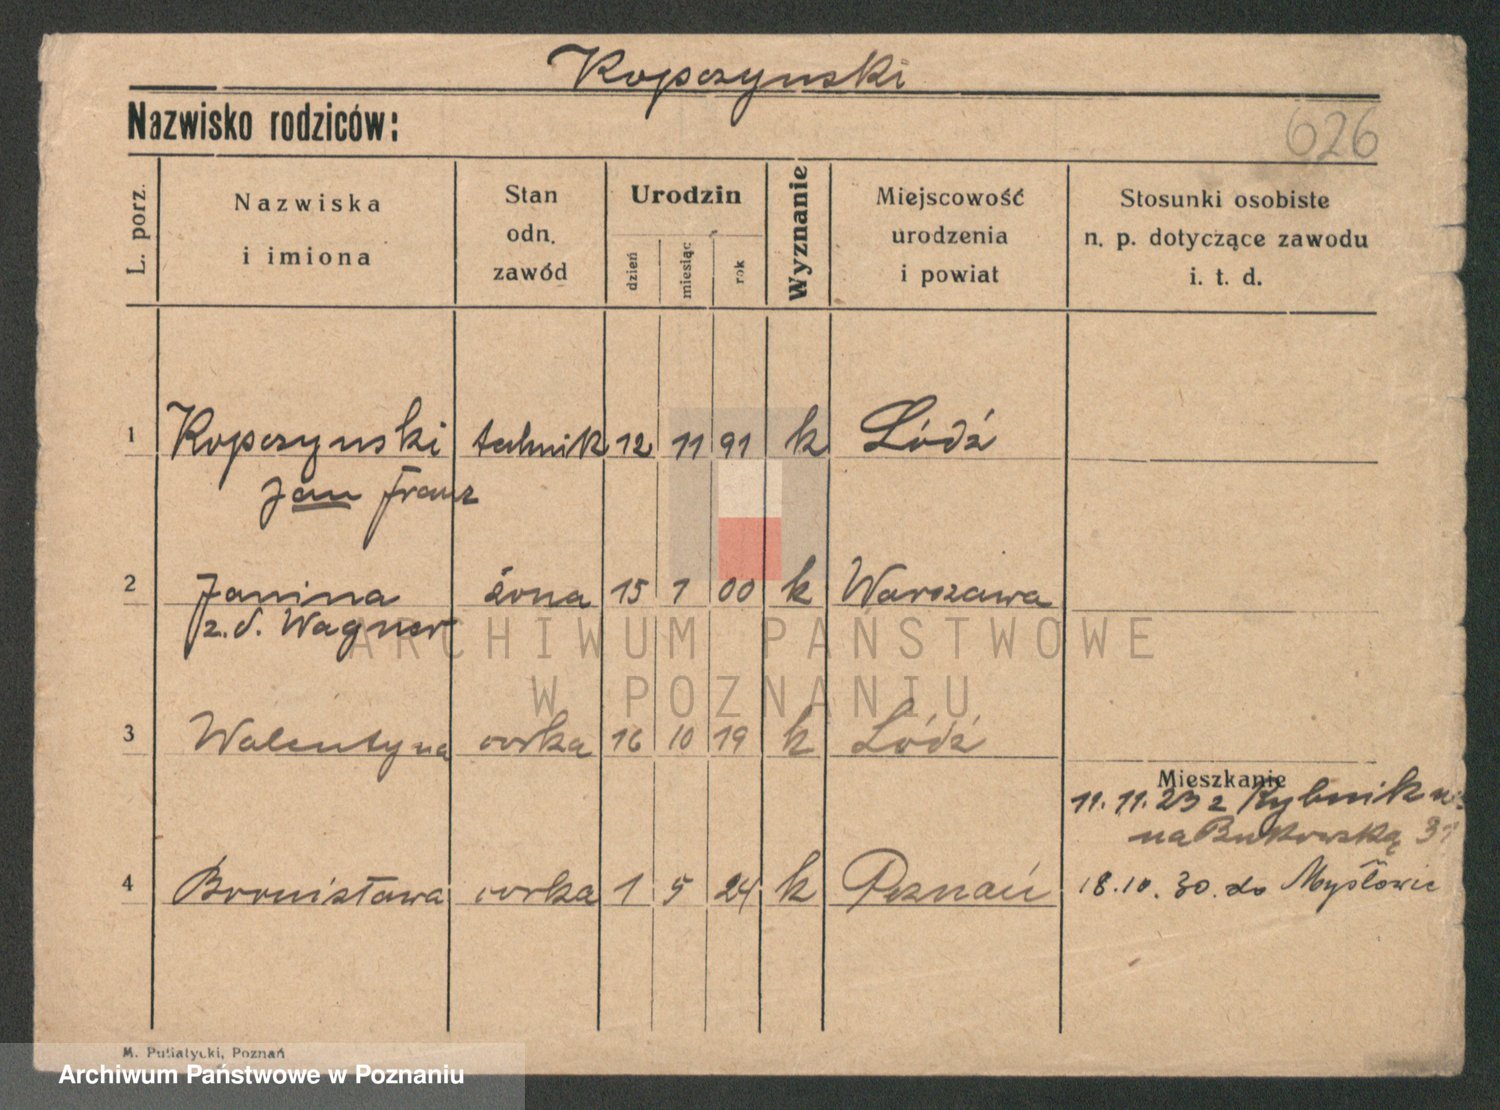 Kopczynski
Nazwisko rodziców:
626
L. porz.
Nazwiska
i imiona
Stan
odn.
zawód
Urodzin
dzień
miesiąc
rok
Wyznanie
Miejscowość
urodzenia
i powiat
Stosunki osobiste
n. p. dotyczące zawodu
i. t. d.
1 Kopczynski technik 12 11 91 k Łódź
Jan Franz
2 Janina żona 15 1 00 k Warszawa
z. d. Wagner
ARCHIWUM PAŃSTWOWE
W POZNANIU
3 Walentyna corka 16 10 19 k Łódź
Mieszkanie
11. 11. 23 z Rybnik
na Bukowską
4 Bronisława corka 1 5 24 k Poznań 18. 10. 30. do Mysłowic
M. Putiatycki, Poznań
Archiwum Państwowe w Poznaniu